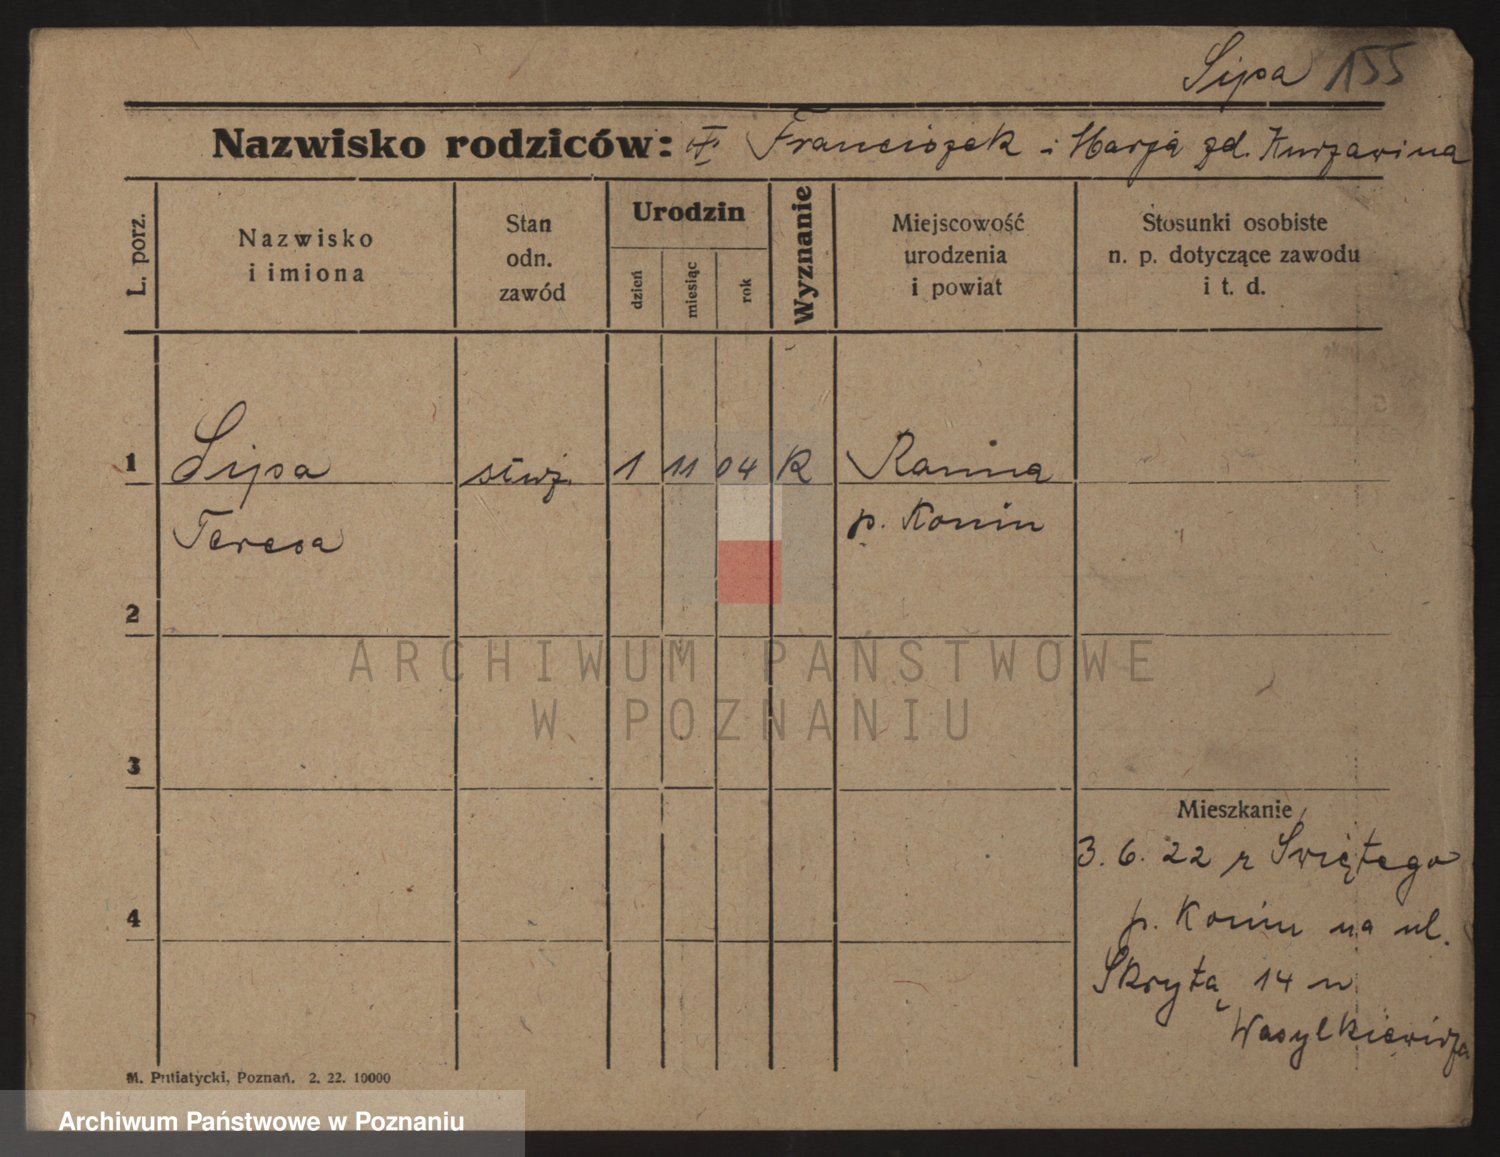 Lipsa 155
Nazwisko rodziców: Franciszek i Marja zd. Kurzawina
L. porz.
Nazwisko
i imiona
Stan
odn.
zawód
Urodzin
dzień
miesiąc
rok
Wyznanie
Miejscowość
urodzenia
i powiat
Stosunki osobiste
n. p. dotyczące zawodu
i t. d.
1 Lipsa służ. 1 11 04 R Ranina
Teresa p. Konin
2
3
4
Mieszkanie
3. 6. 22 z Świętego
p. Konin na ul.
Skrytą 14 u
Wasylkiewicza
ARCHIWUM PAŃSTWOWE
W POZNANIU
M. Putiatycki, Poznań. 2. 22. 10000
Archiwum Państwowe w Poznaniu